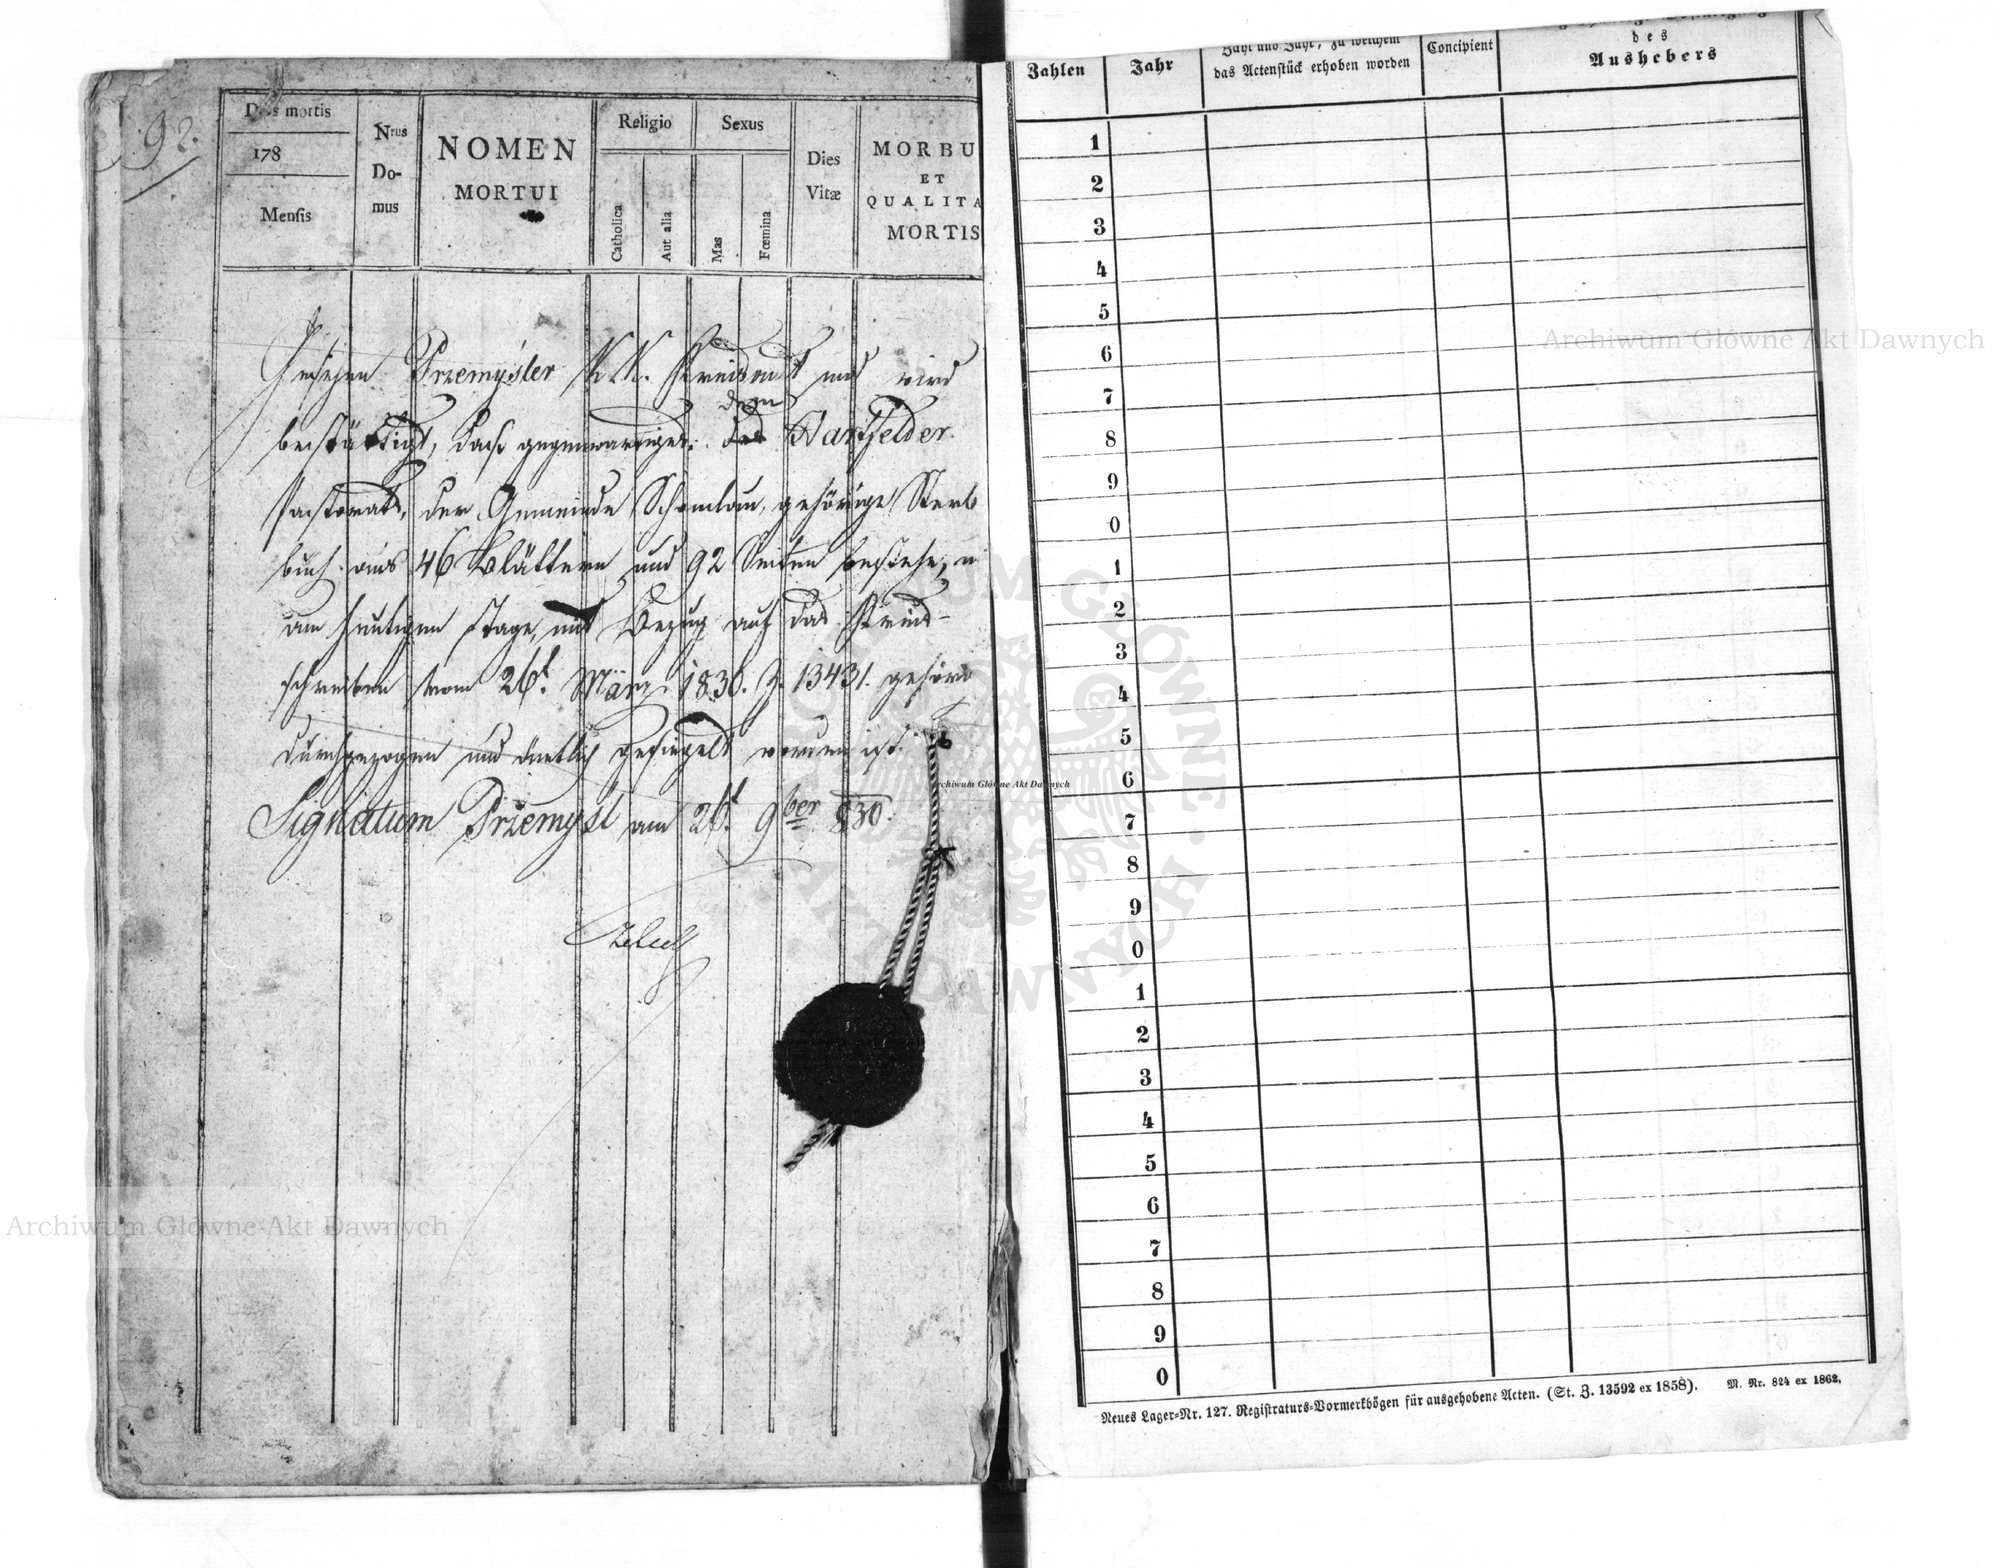 92.
Dies mortis
178
Mensis
Nrus
Do-
mus
NOMEN
MORTUI
Religio
Catholica
Aut alia
Sexus
Mas
Fœmina
Dies
Vitæ
MORBU
ET
QUALITA
MORTIS
Przemysler K.K. Kreisamt und wird
bestättigt, daß gegenwärtiges, dem Hartfelder
Pastorate, der Gemeinde Schomlau, gehörige Sterb
buch aus 46 Blättern und 92 Seiten bestehe,
am heutigen Tage, mit Bezug auf das Kreis-
schreiben vom 26t. März 1830. Z. 13431. gehörig
durchgezogen und amtlich gesiegelt worden ist.
Signatum Przemysl am 26t. 9ber 830.
Zahlen
Jahr
Zahl und Jahr, zu welchem
das Actenstück erhoben worden
Concipient
des
Aushebers
1
2
3
4
5
6
7
8
9
0
1
2
3
4
5
6
7
8
9
0
1
2
3
4
5
6
7
8
9
0
Neues Lager-Nr. 127. Registraturs-Vormerkbögen für ausgehobene Acten. (St. Z. 13592 ex 1858). M. Nr. 824 ex 1862.
Archiwum Główne Akt Dawnych
Archiwum Główne Akt Dawnych
Archiwum Główne Akt Dawnych